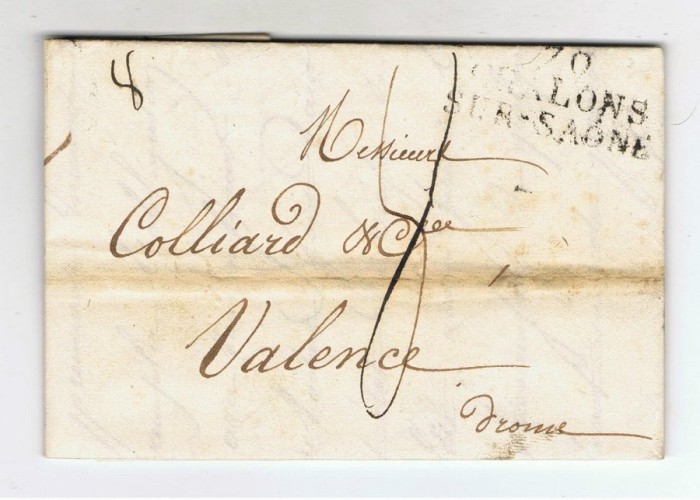 8
70
CHALONS
SUR-SAÔNE
Messieurs
Colliard & Cie
Valence
Drome